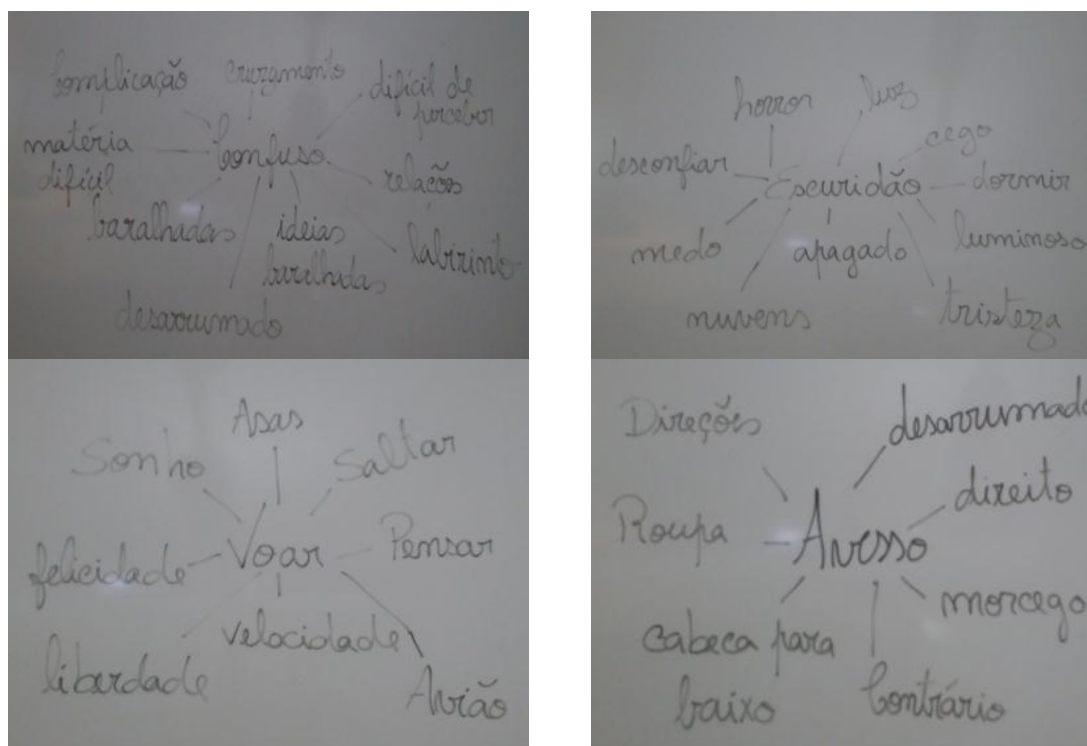 Complicação
cruzamento
difícil de
perceber
matéria
difícil
Confuso
relações
baralhadas
ideias
baralhadas
labirinto
desarrumado
horror
luz
cego
desconfiar
Escuridão
dormir
medo
apagado
luminoso
nuvens
tristeza
Asas
Sonho
Saltar
felicidade
Voar
Pensar
velocidade
liberdade
Avião
Direções
desarrumado
direito
Roupa
Avesso
morcego
cabeca para
baixo
Contrário